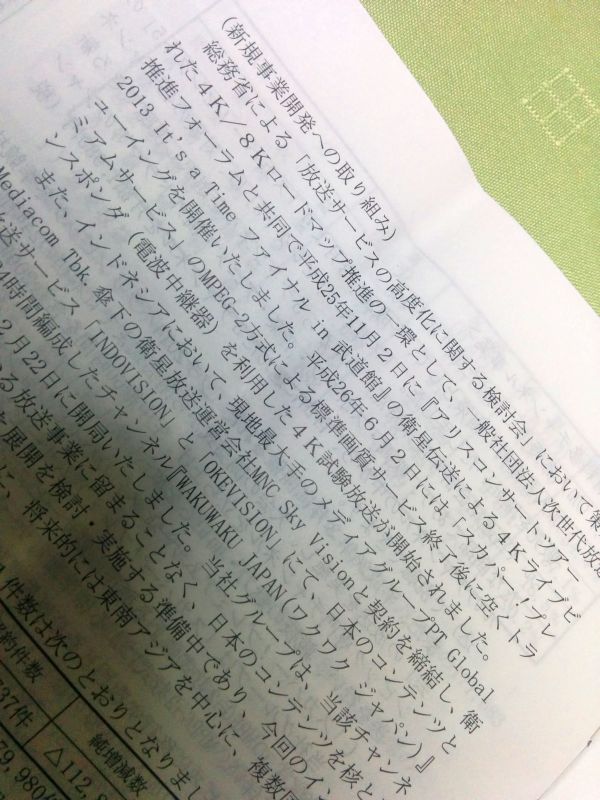 （新規事業開発への取り組み）
総務省による「放送サービスの高度化に関する検討会」において集
れた４Ｋ／８Ｋロードマップ推進の一環として、一般社団法人次世代放送
推進フォーラムと共同で平成25年11月２日に『アリスコンサートツアー
2013 It's a Time ファイナル in 武道館』の衛星伝送による４Ｋライブビ
ューイングを開催いたしました。平成26年６月２日には「スカパー！プレ
ミアムサービス」のMPEG-2方式による標準画質サービス終了後に空くトラ
ンスポンダ（電波中継器）を利用した４Ｋ試験放送が開始されました。
また、インドネシアにおいて、現地最大手のメディアグループPT Global
Mediacom Tbk. 傘下の衛星放送運営会社MNC Sky Visionと契約を締結し、衛
放送サービス「INDOVISION」と「OKEVISION」にて、日本のコンテンツと
4時間編成したチャンネル『WAKUWAKU JAPAN(ワクワク ジャパン)』
２月22日に開局いたしました。当社グループは、当該チャンネ
る放送事業に留まることなく、日本のコンテンツを核と
展開を検討・実施する準備中であり、今回のイン
に、将来的には東南アジアを中心に、複数国
件数は次のとおりとなりまし
約件数
純増減数
37件
△112,
79,980